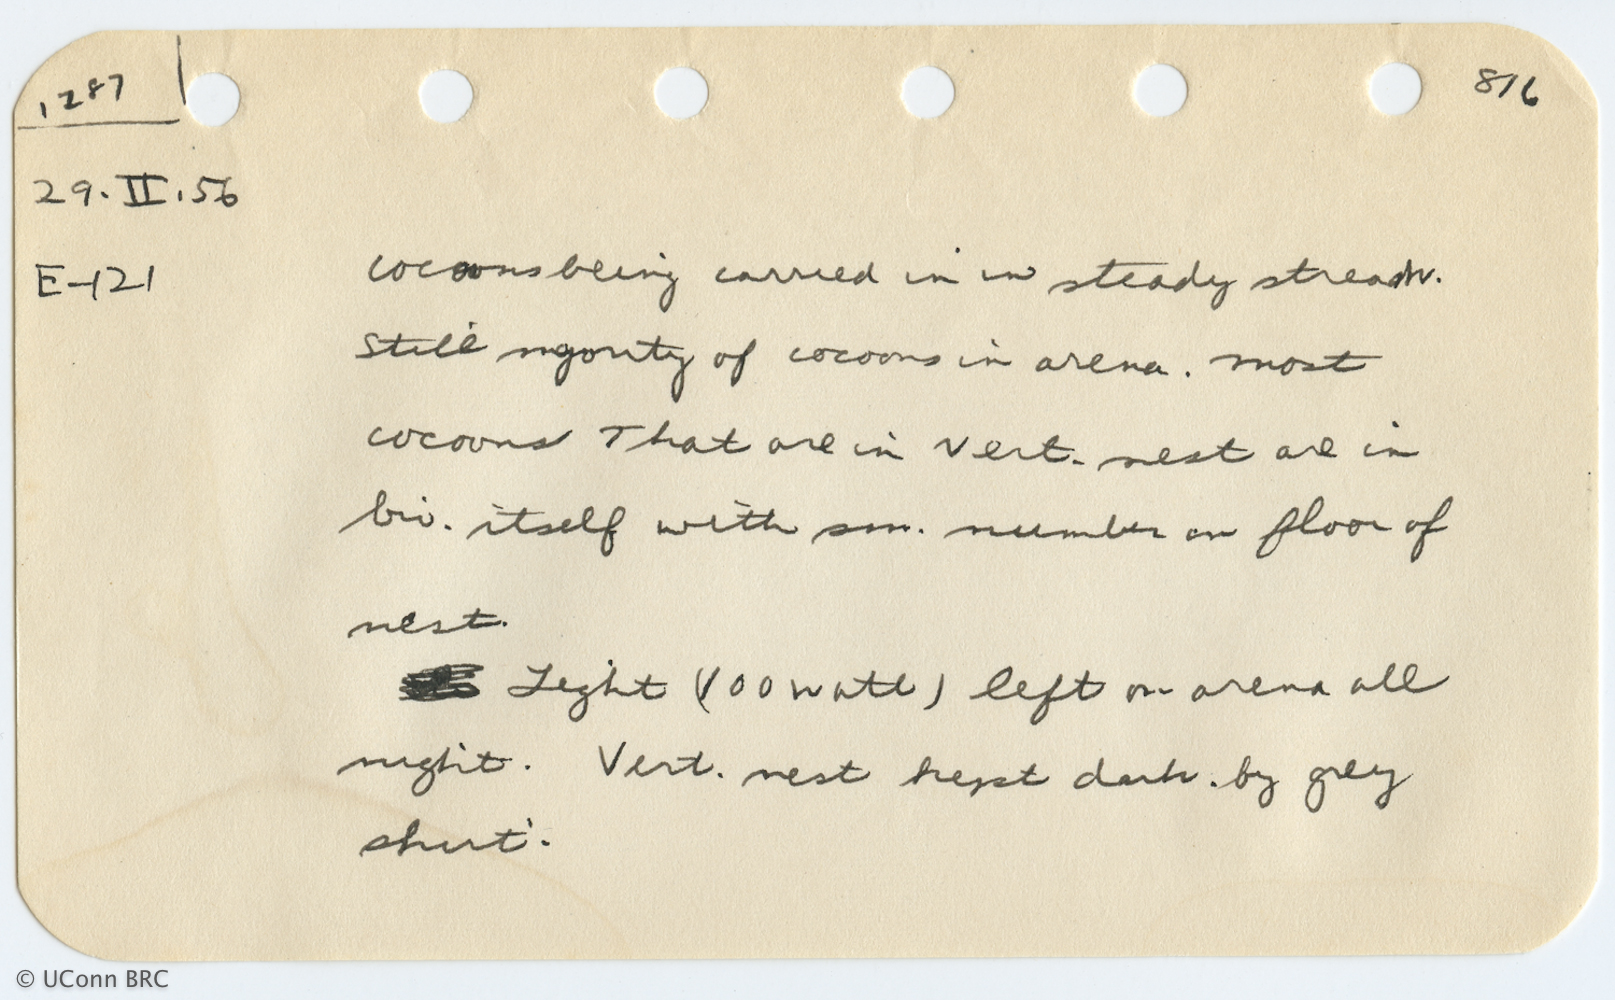 1287
816
29.II.56
E-121
cocoons being carried in in steady stream.
Still majority of cocoons in arena. Most
cocoons that are in vert. nest are in
biv. itself with sm. number on floor of
nest.
Light (100 watt) left on arena all
night. Vert. nest kept dark by grey
shirt.
© UConn BRC